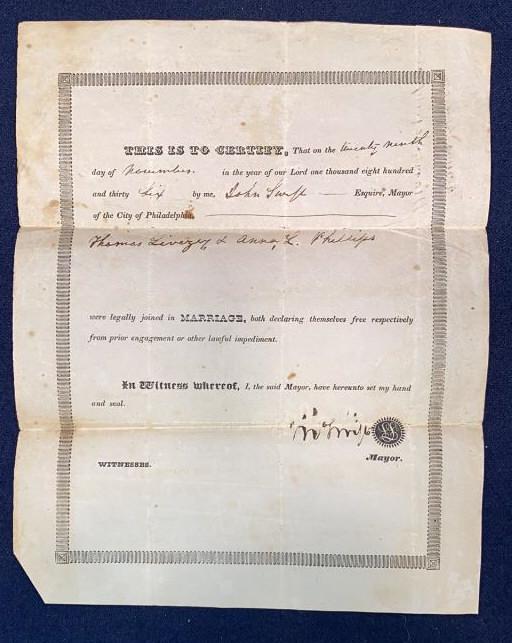 THIS IS TO CERTIFY, That on the twenty ninth
day of November in the year of our Lord one thousand eight hundred
and thirty six by me, John Swift Esquire, Mayor
of the City of Philadelphia,
Thomas Livezey & Anna L. Phillips
were legally joined in MARRIAGE, both declaring themselves free respectively
from prior engagement or other lawful impediment.
In Witness whereof, I, the said Mayor, have hereunto set my hand
and seal.
Jn Swift LS
Mayor.
WITNESSES.